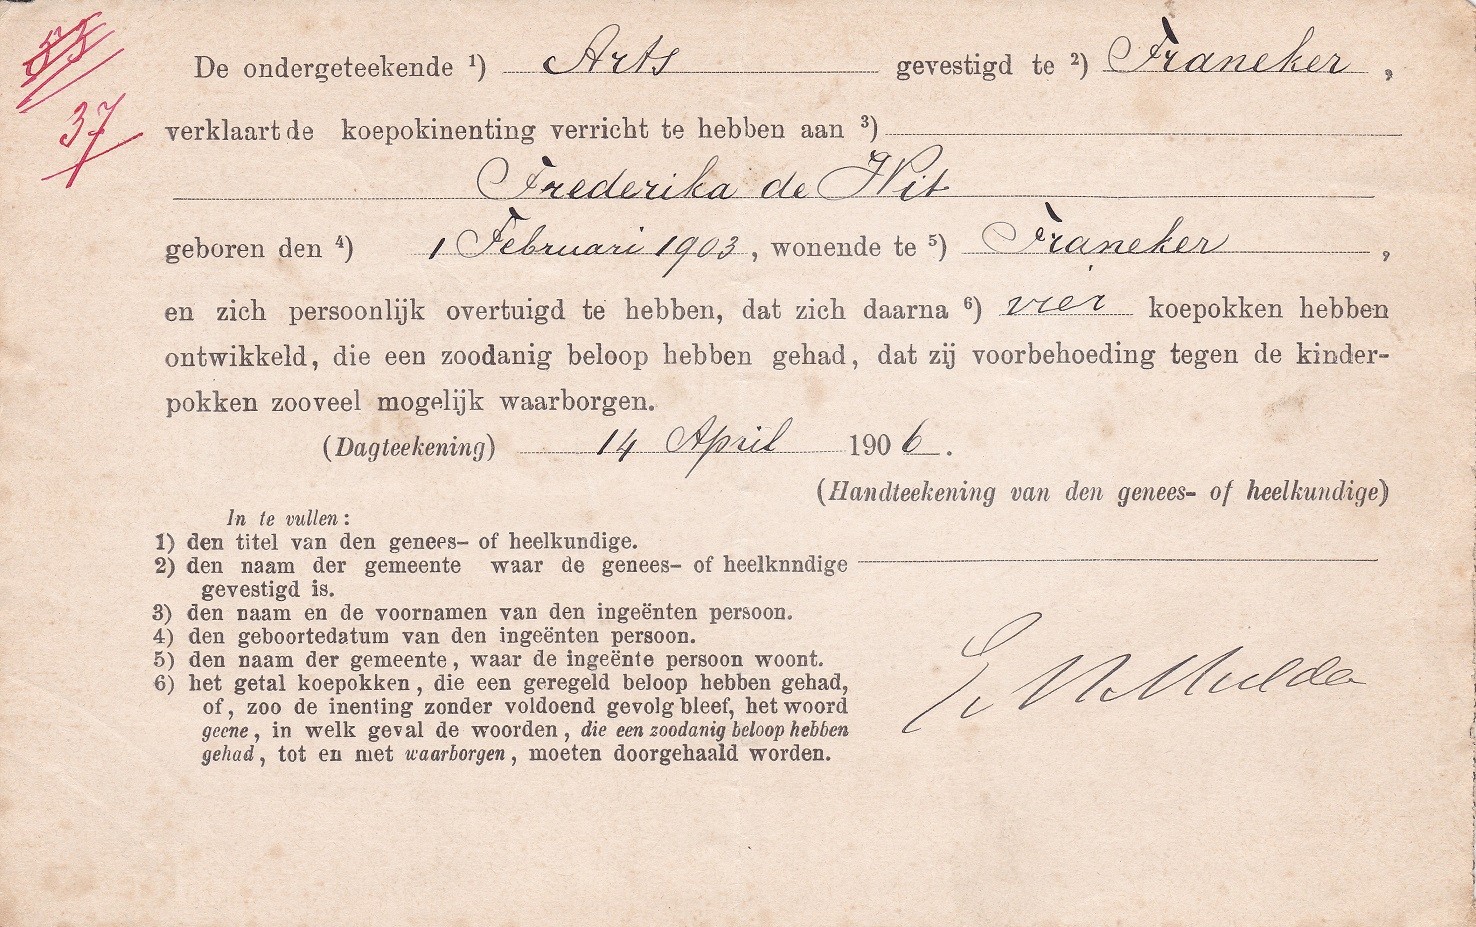 55
37
De ondergeteekende ¹) Arts gevestigd te ²) Franeker,
verklaart de koepokinenting verricht te hebben aan ³)
Frederika de Wit
geboren den ⁴) 1 Februari 1903, wonende te ⁵) Franeker,
en zich persoonlijk overtuigd te hebben, dat zich daarna ⁶) vier koepokken hebben
ontwikkeld, die een zoodanig beloop hebben gehad, dat zij voorbehoeding tegen de kinder-
pokken zooveel mogelijk waarborgen.
(Dagteekening) 14 April 1906.
(Handteekening van den genees- of heelkundige)
In te vullen:
1) den titel van den genees- of heelkundige.
2) den naam der gemeente waar de genees- of heelknndige
gevestigd is.
3) den naam en de voornamen van den ingeënten persoon.
4) den geboortedatum van den ingeënten persoon.
5) den naam der gemeente, waar de ingeënte persoon woont.
6) het getal koepokken, die een geregeld beloop hebben gehad,
of, zoo de inenting zonder voldoend gevolg bleef, het woord
geene, in welk geval de woorden, die een zoodanig beloop hebben
gehad, tot en met waarborgen, moeten doorgehaald worden.
Mulder